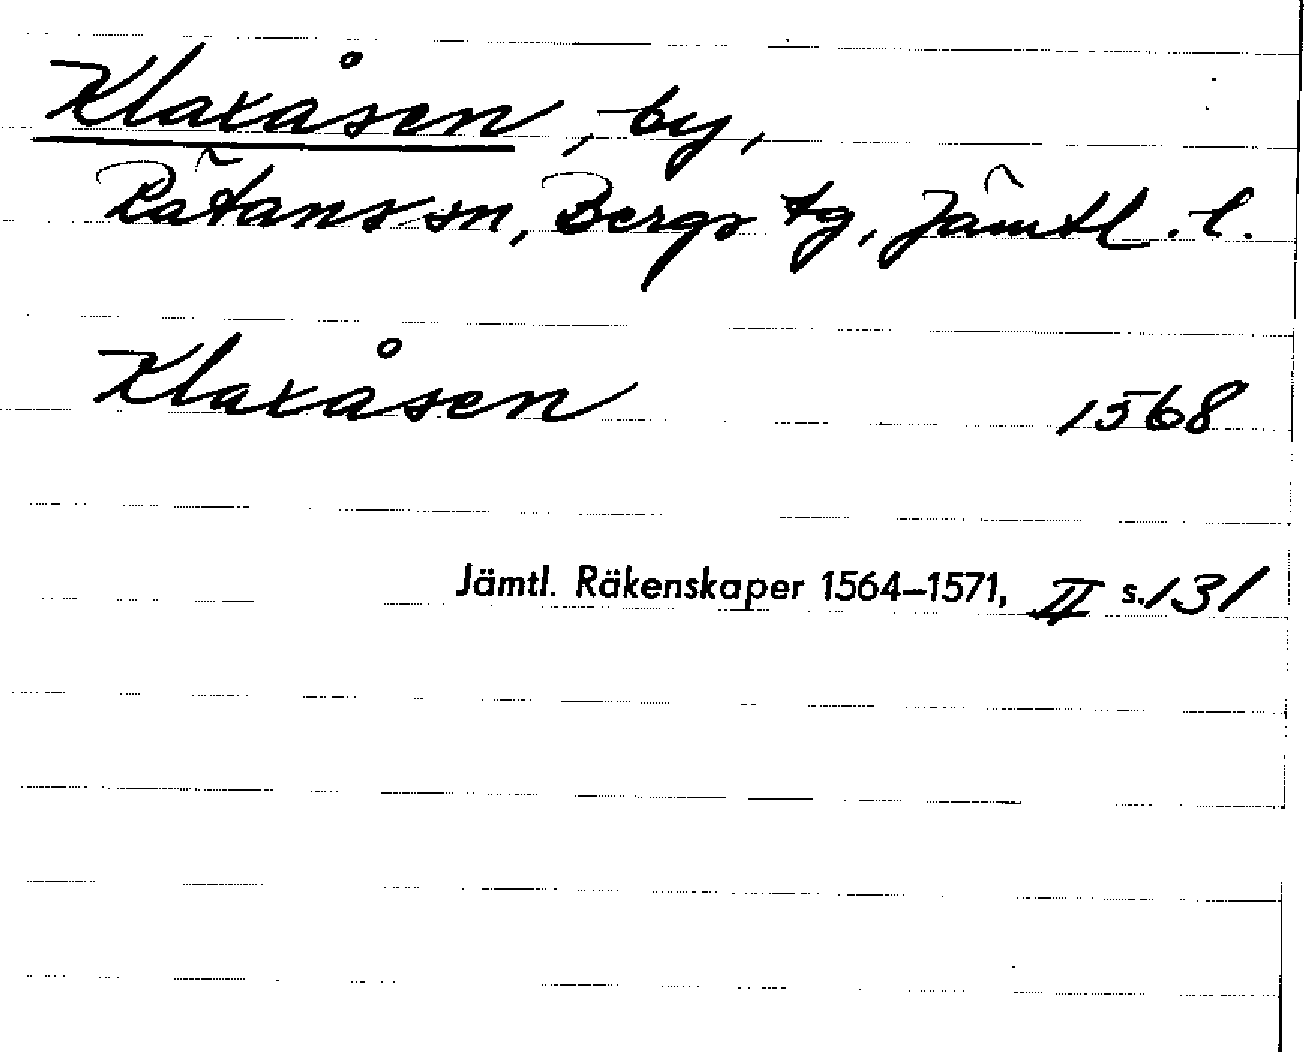 Klaxåsen, by,
Rätans sn, Bergs tg, Jämtl. l.
Klaxåsen 1568
Jämtl. Räkenskaper 1564–1571, II s. 131